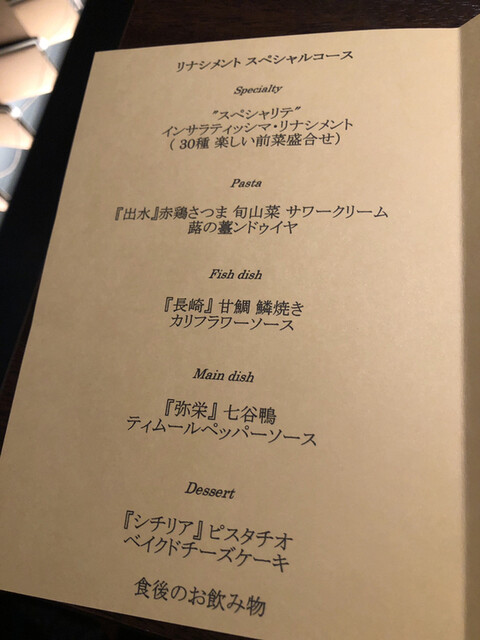 リナシメント スペシャルコース
Specialty
"スペシャリテ"
インサラティッシマ・リナシメント
( 30種 楽しい前菜盛合せ)
Pasta
『出水』赤鶏さつま 旬山菜 サワークリーム
蕗の薹ンドゥイヤ
Fish dish
『長崎』 甘鯛 鱗焼き
カリフラワーソース
Main dish
『弥栄』 七谷鴨
ティムールペッパーソース
Dessert
『シチリア』 ピスタチオ
ベイクドチーズケーキ
食後のお飲み物